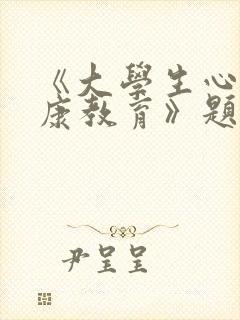 《大學生心
康教育》題
尹呈呈